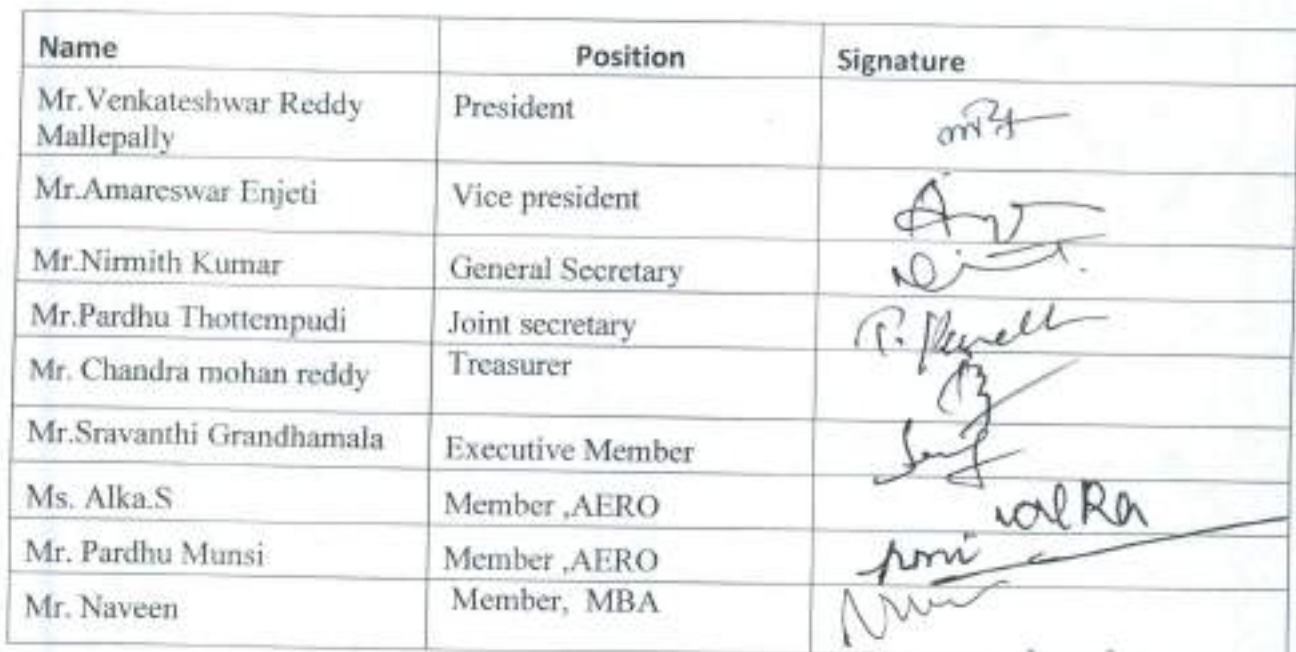 Name Position Signature
Mr.Venkateshwar Reddy President
Mallepally
Mr.Amareswar Enjeti Vice president
Mr.Nirmith Kumar General Secretary
Mr.Pardhu Thottempudi Joint secretary
Mr. Chandra mohan reddy Treasurer
Mr.Sravanthi Grandhamala Executive Member
Ms. Alka.S Member ,AERO
Mr. Pardhu Munsi Member ,AERO
Mr. Naveen Member, MBA